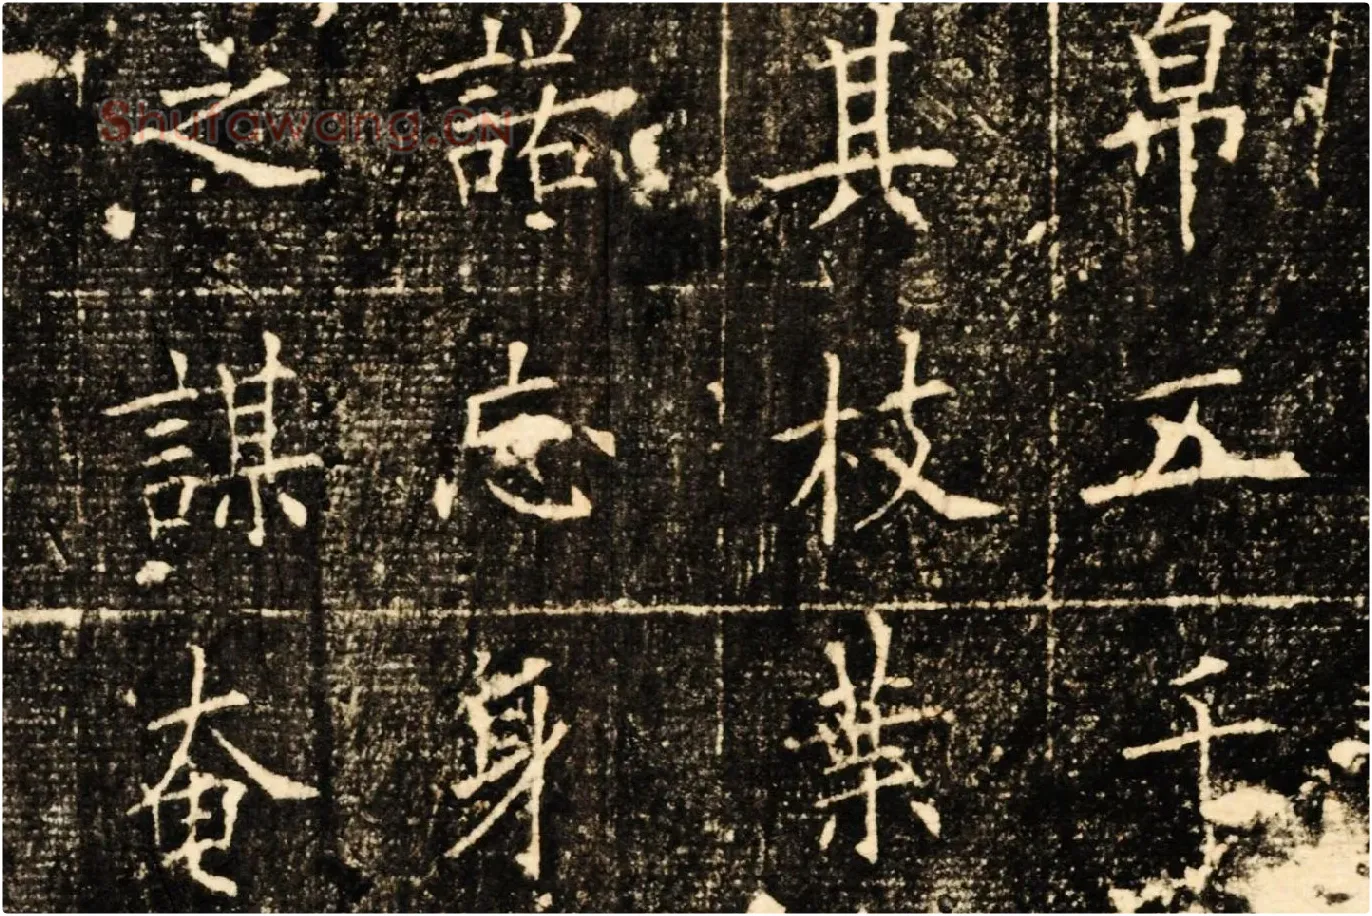 帛五千
其枝葉
諾忘身
之謀奄
Shufawang.CN